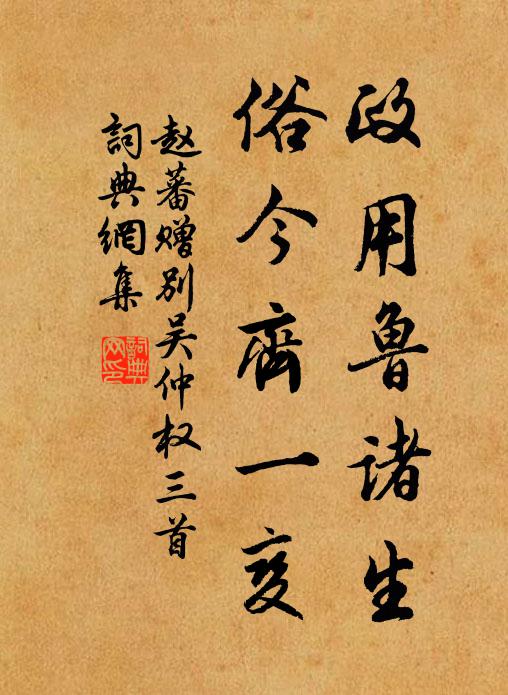 政用鲁诸生
俗今齊一变
赵蕃赠别吴仲权三首
詞典網集
詞典網印